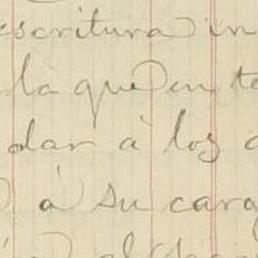 escritura in
la que en te
dar à los
à su carg